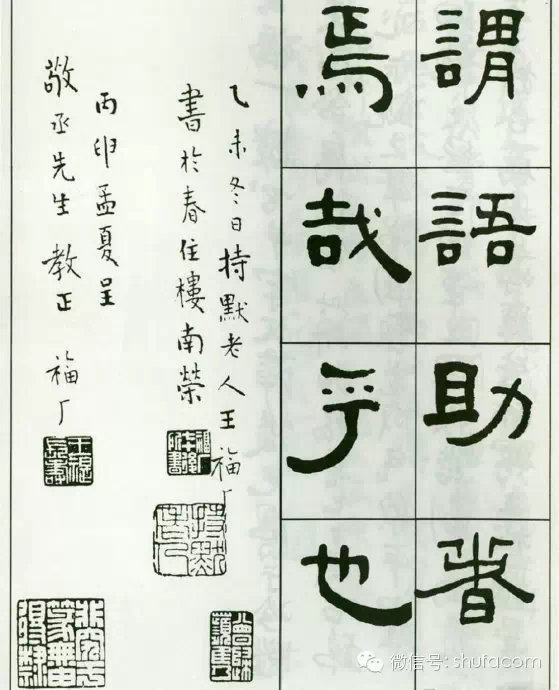 謂語助者
焉哉乎也
乙未冬日持默老人王福厂
書於春住樓南榮
丙申孟夏呈
敬丞先生教正 福厂
持默老人
非究于篆無由得隸
微信号: shufacom